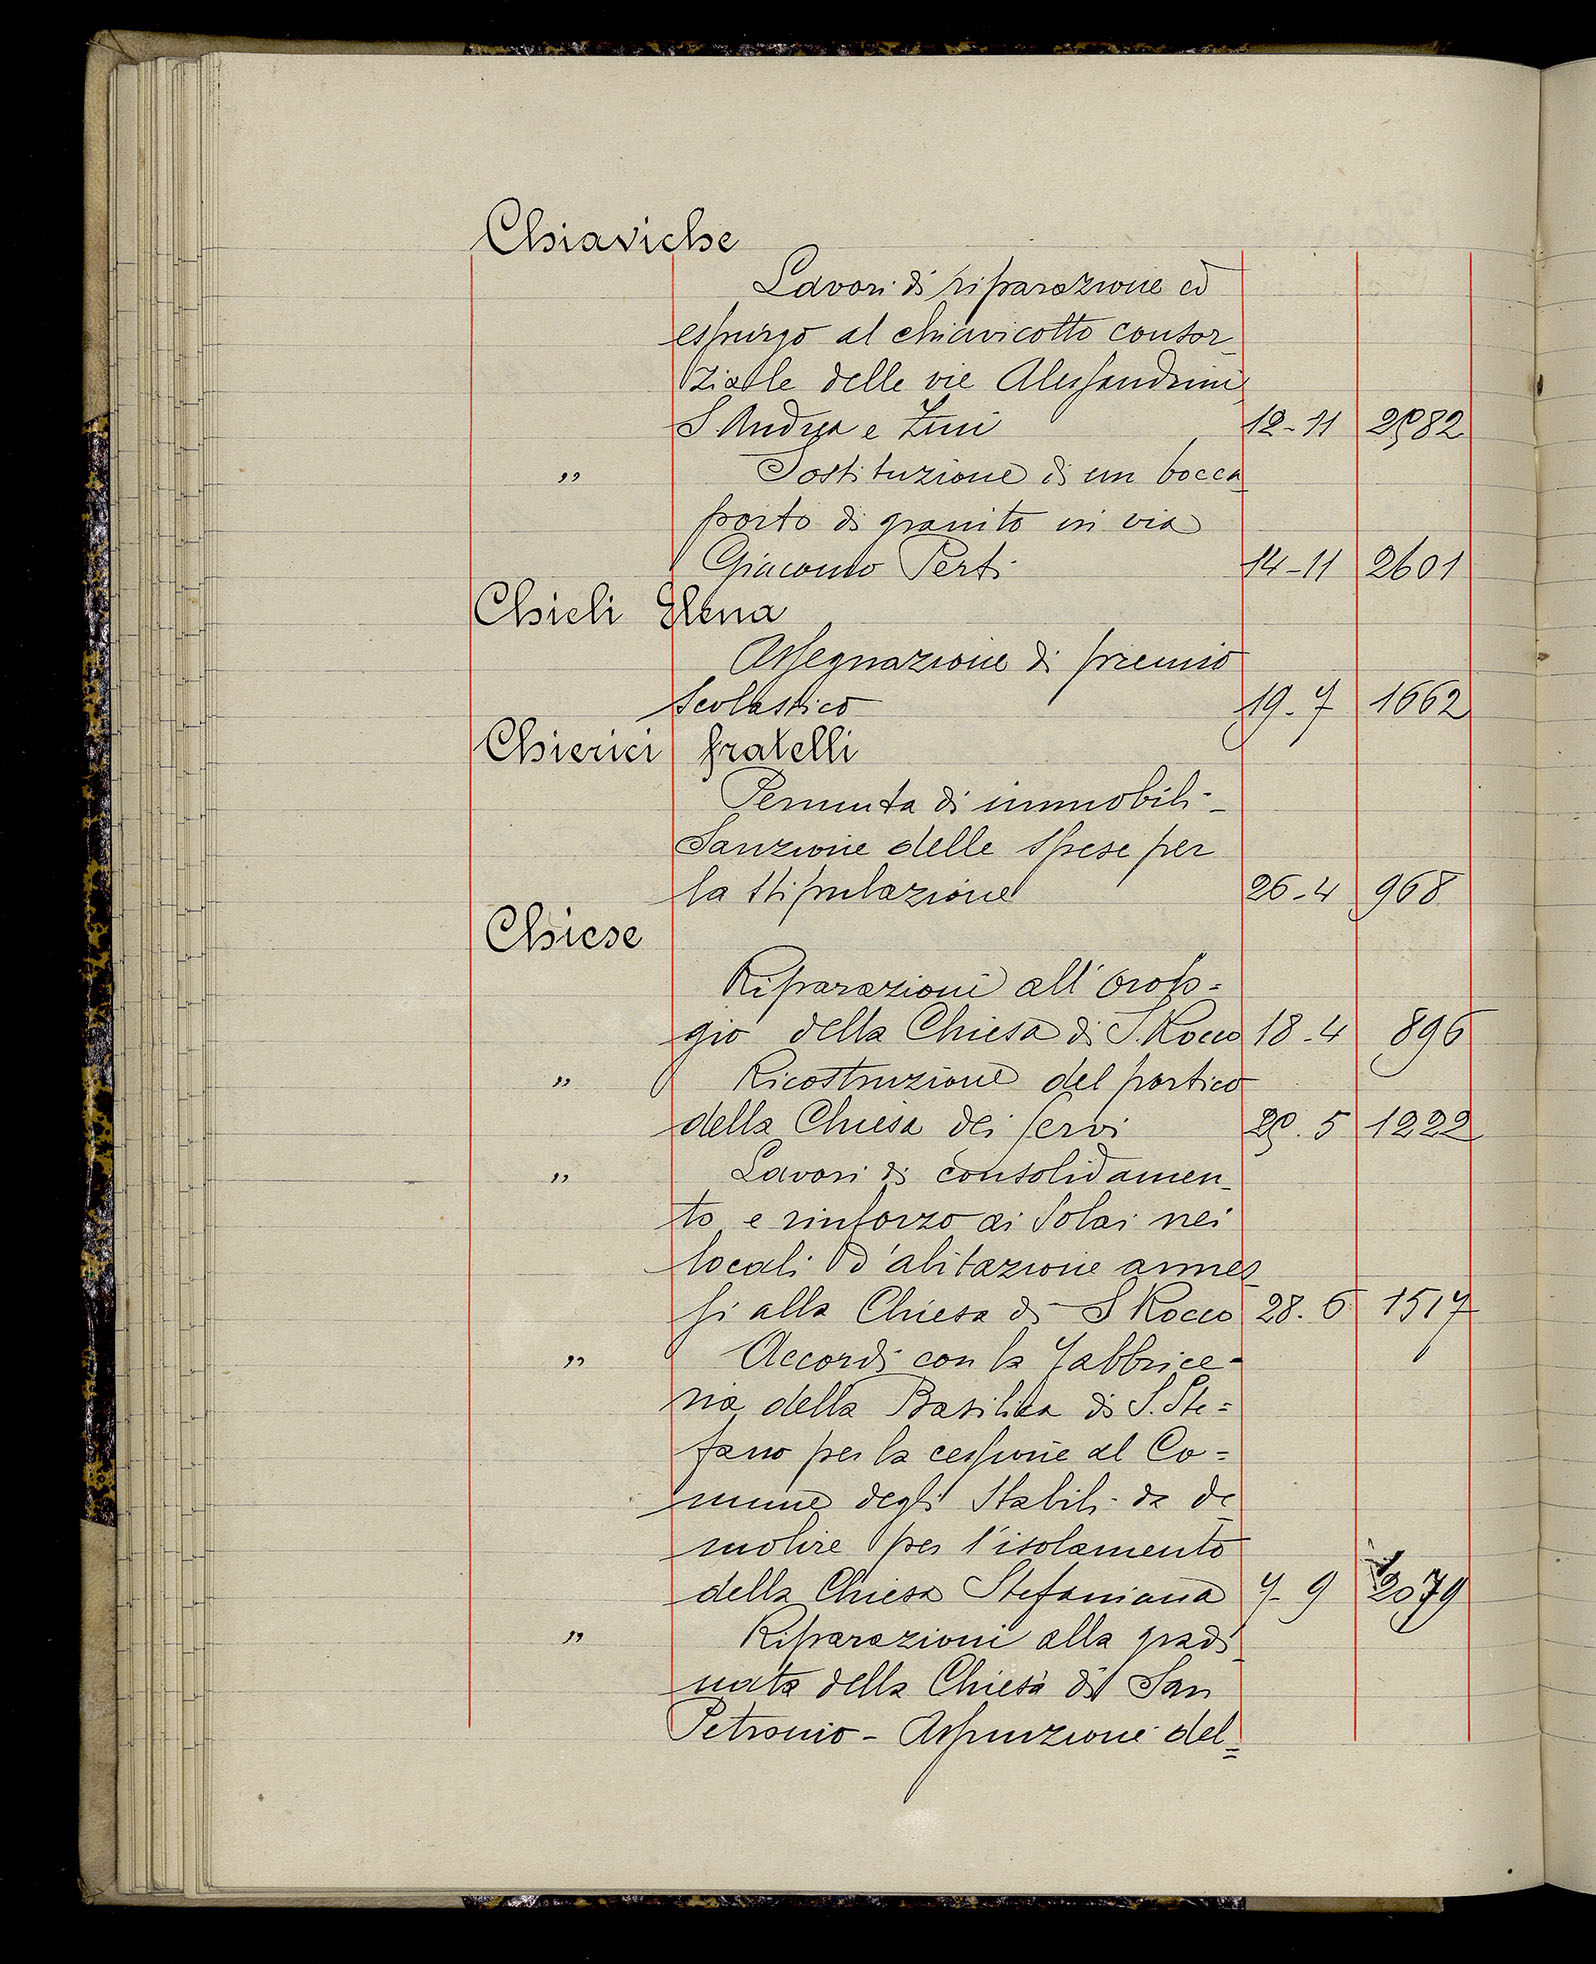 Chiaviche
Lavori di riparazione ed
espurgo al chiavicotto consor_
ziale delle vie Alessandrini
S. Andrea e Zini 12-11 2582
„ Sostituzione di un bocca_
porto di granito in via
Giacomo Perti 14-11 2601
Chieli Elena
Assegnazione di premio
scolastico 19-7 1662
Chierici fratelli
Permuta di immobili-_
Sanzione delle spese per
la stipulazione 26-4 968
Chiese
Riparazioni all'orolo=
gio della Chiesa di S. Rocco 18-4 896
„ Ricostruzione del portico
della Chiesa dei Servi . 5 1222
„ Lavori di consolidamen_
to e rinforzo ai solai nei
locali d'abitazione annes
si alla Chiesa di S Rocco 28. 6 1517
„ Accordi con la Fabbrice=
ria della Basilica di S. Ste=
fano per la cessione al Co=
mune degli Stabili da de_
molire per l'isolamento
della Chiesa Stefaniana 7- 9 2079
„ Riparazioni alla gradi_
nata della Chiesa di San
Petronio - Assunzione del=